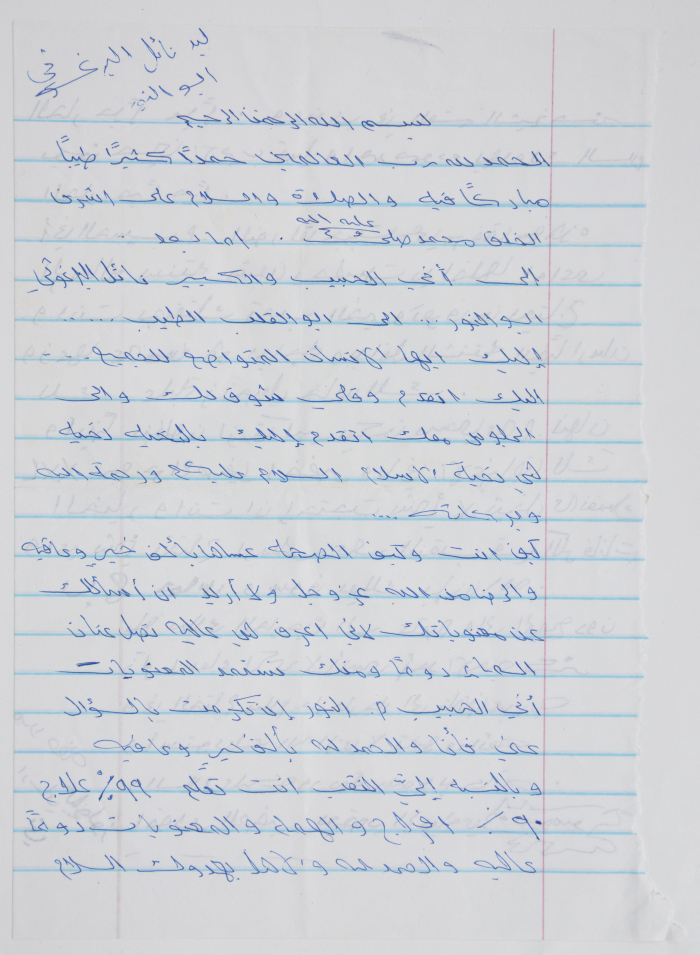 ليد نائل البرغوثي
ابو النور
بسم الله الرحمن الرحيم
الحمد لله رب العالمين حمداً كثيراً طيباً
مباركاً فيه والصلاة والسلام على اشرف
الخلق محمد صلى الله عليه . اما بعد .
الى أخي الحبيب والكبير نائل البرغوثي
ابو النور .. الى ابو القلب الطيب .....
إليك ايها الانسان المتواضع للجميع ...
اليك اتقدم وقلبي شوق لك والى
الجلوس معك اتقدم إليك بالتحية تحية
هي تحية الاسلام السلام عليكم ورحمة الله
وبركاته ....
كيف انت وكيف الصحة عساها بألف خير وعافية
والرضا من الله عز وجل ولا أريد ان أسألك
عن معنوياتك لاني اعرف هي عالية تصل عنان
السماء دوماً ومنك نستمد المعنويات
أخي الحبيب م. النور إن تكرمت بالسؤال
عني فأنا والحمد لله بألف خير وعافية
وبالنسبة إلي النقب انت تعلم ٩٩٪ علاج
٩٠٪ افراج والهمة والمعنويات دوماً
عالية والحمد لله والأهل يهدوك السلام